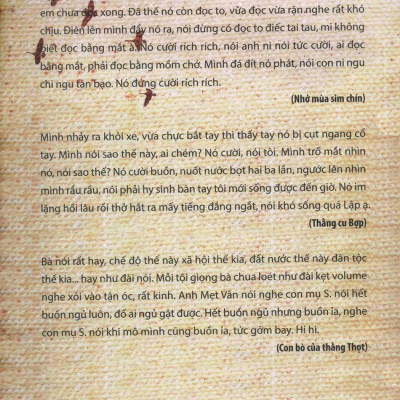 em chưa đọc xong. Đã thế nó còn đọc to, vừa đọc vừa rặn nghe rất khó
chịu. Điên lên mình đẩy nó ra, nói đừng có đọc to điếc tai tau, mi không
biết đọc bằng mắt à. Nó cười rích rích, nói anh ni nói tức cười, ai đọc
bằng mắt, phải đọc bằng mồm chớ. Mình đá đít nó phát, nói con ni ngu
chi ngu tàn bạo. Nó đứng cười rích rích.
(Nhớ mùa sim chín)
Mình nhảy ra khỏi xe, vừa chực bắt tay thì thấy tay nó bị cụt ngang cổ
tay. Mình nói sao thế này, ai chém? Nó cười, nói tôi. Mình trố mắt nhìn
nó, nói sao thế? Nó cười buồn, nuốt nước bọt hai ba lần, ngước lên nhìn
mình rầu rầu, nói phải hy sinh bàn tay tôi mới sống được đến giờ. Nó im
lặng hồi lâu rồi thở hắt ra mấy tiếng đắng ngắt, nói khó sống quá Lập ạ.
(Thằng cu Bợp)
Bà nói rất hay, chế độ thế này xã hội thế kia, đất nước thế này dân tộc
thế kia... hay như đài nói. Mỗi tội giọng bà chua loét như đài kẹt volume
nghe xói vào tận óc, rất kinh. Anh Mẹt Văn nói nghe con mụ S. nói hết
buồn ngủ luôn, đố ai ngủ gật được. Hết buồn ngủ nhưng buồn ỉa, nghe
con mụ S. nói khi mô mình cũng buồn ỉa, tức gớm bay. Hi hi.
(Con bò của thằng Thọt)